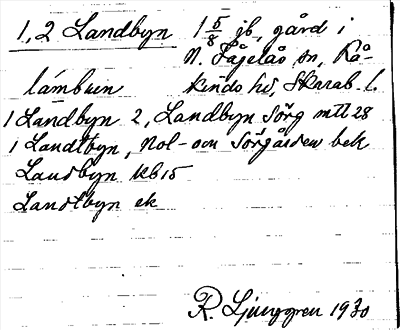 1,2 Landbyn 1 5/8 jb, gård i
N. Fågelås sn, Kå-
lámbun kinds hd, Skarab. l.
1 Landbyn 2, Landbyn Sörg mtl 28
1 Landtbyn, Nol- och Sörgården bek
Landbyn kb 15
Landtbyn ek
R. Ljunggren 1930